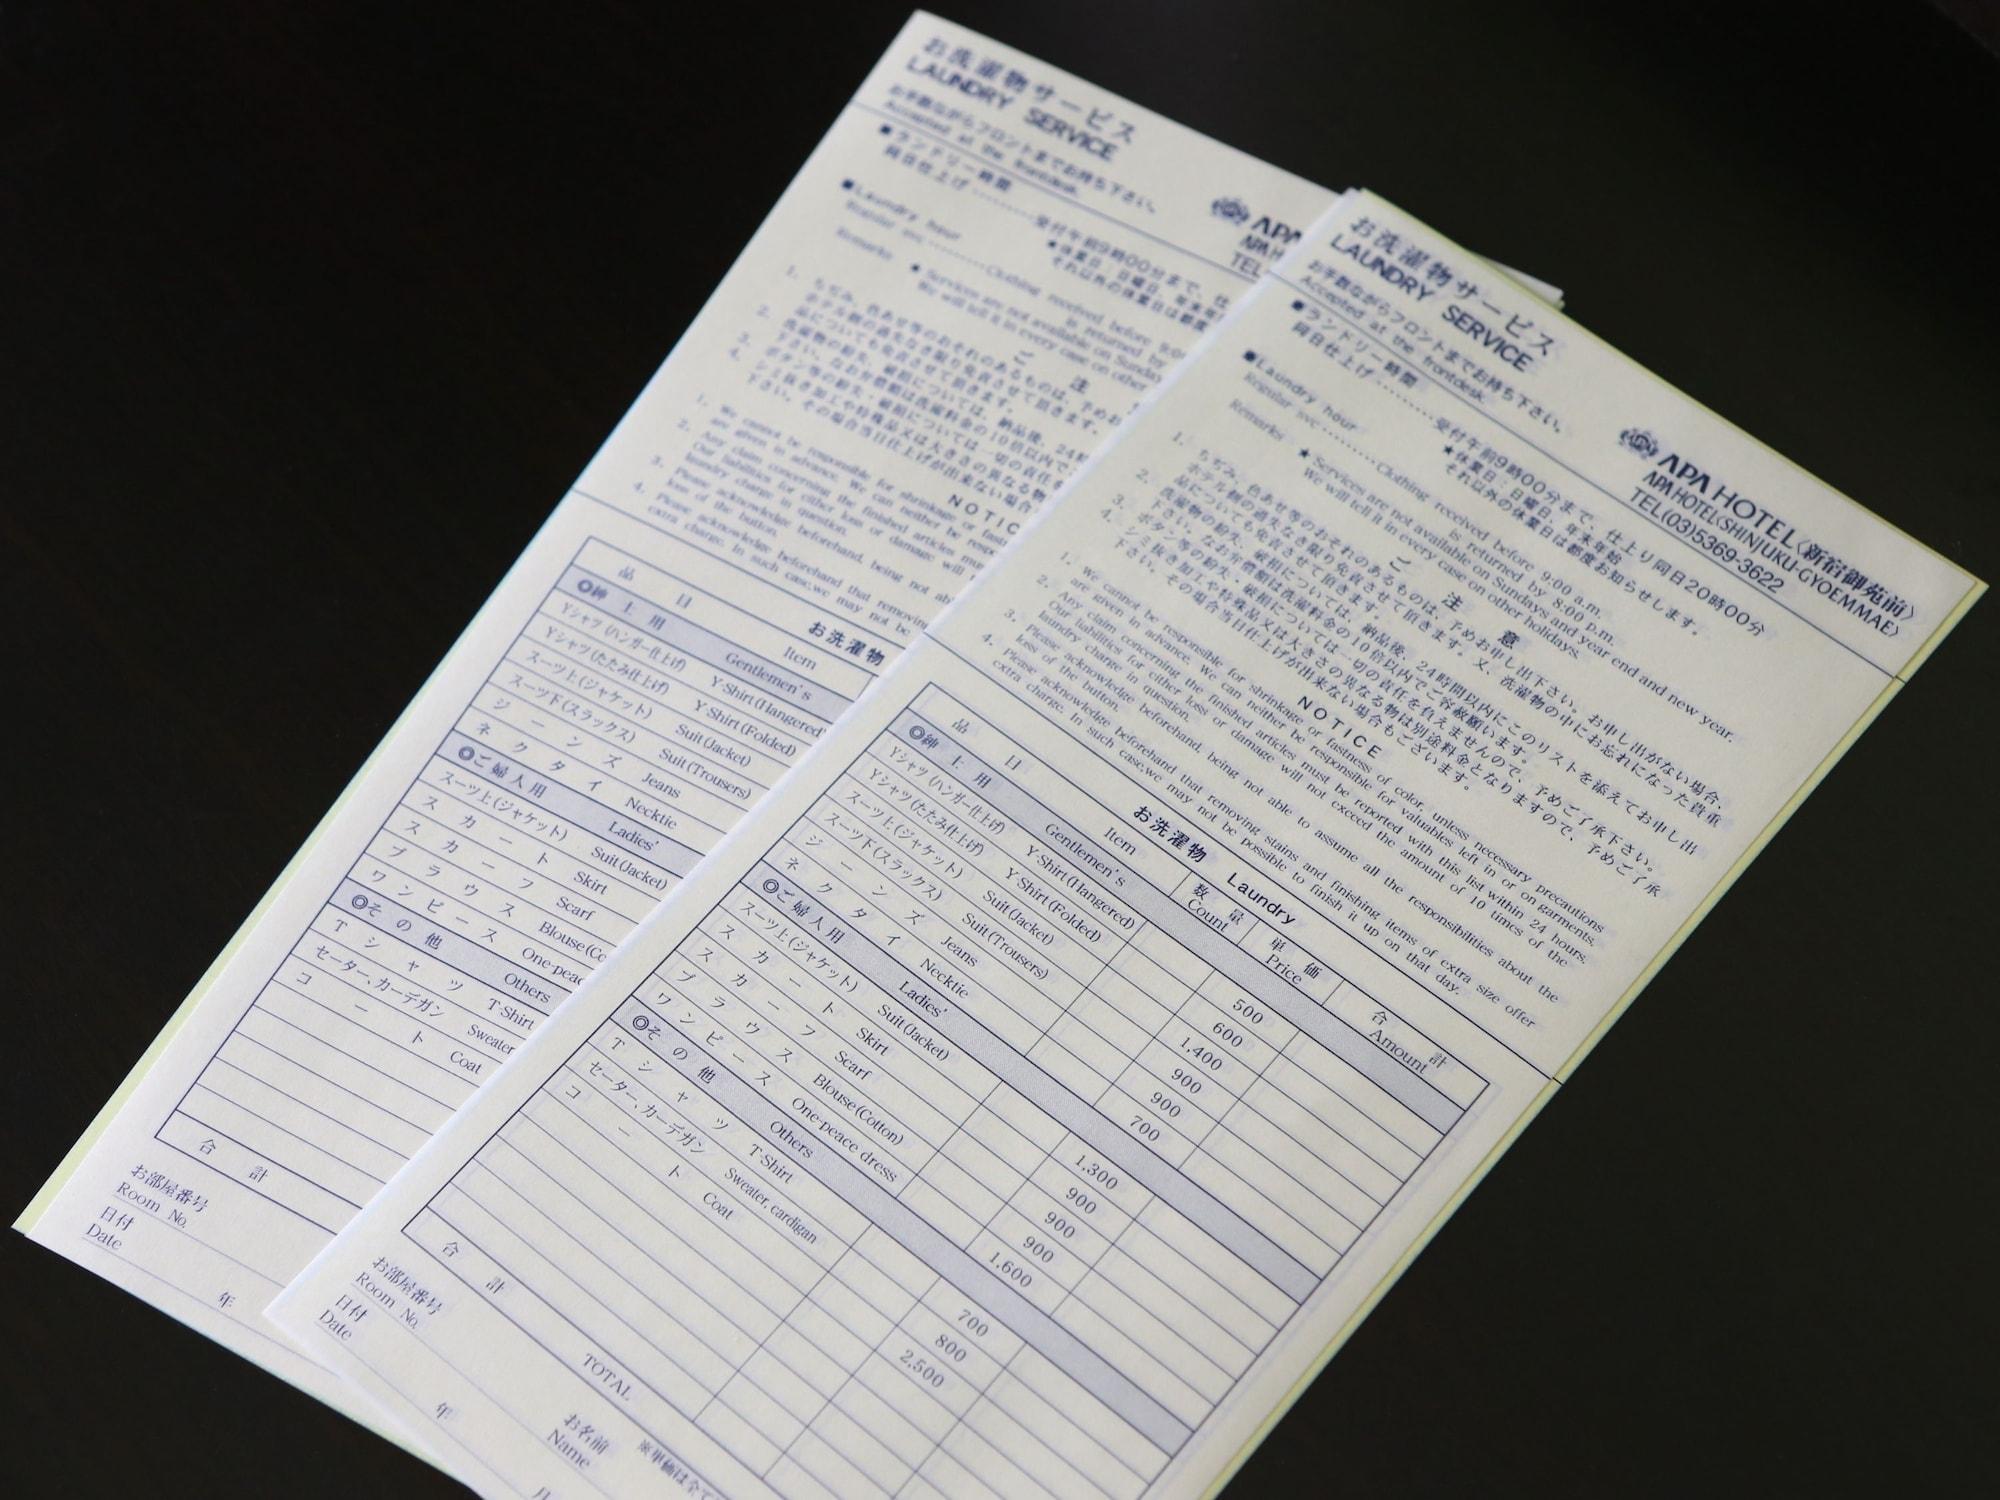 お洗濯物サービス
LAUNDRY SERVICE
お手数ながらフロントまでお持ち下さい。
Accepted at the frontdesk.
APA HOTEL〈新宿御苑前〉
APA HOTEL〈SHINJUKU-GYOEMMAE〉
TEL(03)5369-3622
■ランドリー時間
同日仕上げ………受付午前9時00分まで、仕上り同日20時00分
★休業日：日曜日、年末年始
それ以外の休業日は都度お知らせします。
■Laundry hour
Regular svc………Clothing received before 9:00 a.m.
is returned by 8:00 p.m.
Remarks ★Services are not available on Sundays and year end and new year.
We will tell it in every case on other holidays.
ご注意
1. ちぢみ、色あせ等のおそれのあるものは、予めお申し出下さい。お申し出がない場合、
ホテル側の過失なき限り免責させて頂きます。又、洗濯物の中にお忘れになった貴重
品についても免責させて頂きます。
2. 洗濯物の紛失、破損については、納品後、24時間以内にこのリストを添えてお申し出
下さい。なお弁償額は洗濯料金の10倍以内でご容赦願います。
3. ボタン等の紛失・破損については一切の責任を負えませんので、予めご了承下さい。
4. シミ抜き加工や特殊品又は大きさの異なる物は別途料金となりますので、予めご了承
下さい。その場合当日仕上げが出来ない場合もございます。
NOTICE
1. We cannot be responsible for shrinkage or fastness of color, unless necessary precautions
are given in advance. We can neither be responsible for valuables left in or on garments.
2. Any claim concerning the finished articles must be reported with this list within 24 hours.
Our liabilities for either loss or damage will not exceed the amount of 10 times of the
laundry charge in question.
3. Please acknowledge beforehand, being not able to assume all the responsibilities about the
loss of the button.
4. Please acknowledge beforehand that removing stains and finishing items of extra size offer
extra charge. In such case,we may not be possible to finish it up on that day.
お洗濯物 Laundry
品目 Item 数量 Count 単価 Price 合計 Amount
◎紳士用 Gentlemen's
Yシャツ(ハンガー仕上げ) Y-Shirt(Hangered) 500
Yシャツ(たたみ仕上げ) Y-Shirt(Folded) 600
スーツ上(ジャケット) Suit(Jacket) 1,400
スーツ下(スラックス) Suit(Trousers) 900
ジーンズ Jeans 900
ネクタイ Necktie 700
◎ご婦人用 Ladies'
スーツ上(ジャケット) Suit(Jacket) 1,300
スカート Skirt 900
スカーフ Scarf 900
ブラウス Blouse(Cotton) 900
ワンピース One-peace dress 1,600
◎その他 Others
Tシャツ T-Shirt 700
セーター、カーデガン Sweater, cardigan 800
コート Coat 2,500
合計 TOTAL
お部屋番号
Room No.
お名前
Name
※単価は全て
日付
Date
年 月
お洗濯物サービス
LAUNDRY SERVICE
お手数ながらフロントまでお持ち下さい。
Accepted at the frontdesk.
APA
APA H
TEL
■ランドリー時間
同日仕上げ………受付午前9時00分まで、仕
★休業日：日曜日、年末年
それ以外の休業日は都度
■Laundry hour
Regular svc………Clothing received before 9:0
is returned by
Remarks ★Services are not available on Sunday
We will tell it in every case on other
ご注
1. ちぢみ、色あせ等のおそれのあるものは、予めお
ホテル側の過失なき限り免責させて頂きます。
品についても免責させて頂きます。
2. 洗濯物の紛失、破損については、納品後、24時
下さい。なお弁償額は洗濯料金の10倍以内で
3. ボタン等の紛失・破損については一切の責任を
4. シミ抜き加工や特殊品又は大きさの異なる物
下さい。その場合当日仕上げが出来ない場合
NOTIC
1. We cannot be responsible for shrinkage or fastn
are given in advance. We can neither be respo
2. Any claim concerning the finished articles mu
Our liabilities for either loss or damage will
laundry charge in question.
3. Please acknowledge beforehand, being not ab
loss of the button.
4. Please acknowledge beforehand that removing
extra charge. In such case,we may not be
お洗濯物
品目 Item
◎紳士用 Gentlemen's
Yシャツ(ハンガー仕上げ) Y-Shirt(Hangered)
Yシャツ(たたみ仕上げ) Y-Shirt(Folded)
スーツ上(ジャケット) Suit(Jacket)
スーツ下(スラックス) Suit(Trousers)
ジーンズ Jeans
ネクタイ Necktie
◎ご婦人用 Ladies'
スーツ上(ジャケット) Suit(Jacket)
スカート Skirt
スカーフ Scarf
ブラウス Blouse(Co
ワンピース One-peac
◎その他 Others
Tシャツ T-Shirt
セーター、カーデガン Sweater
コート Coat
合計
お部屋番号
Room No.
日付
Date
年